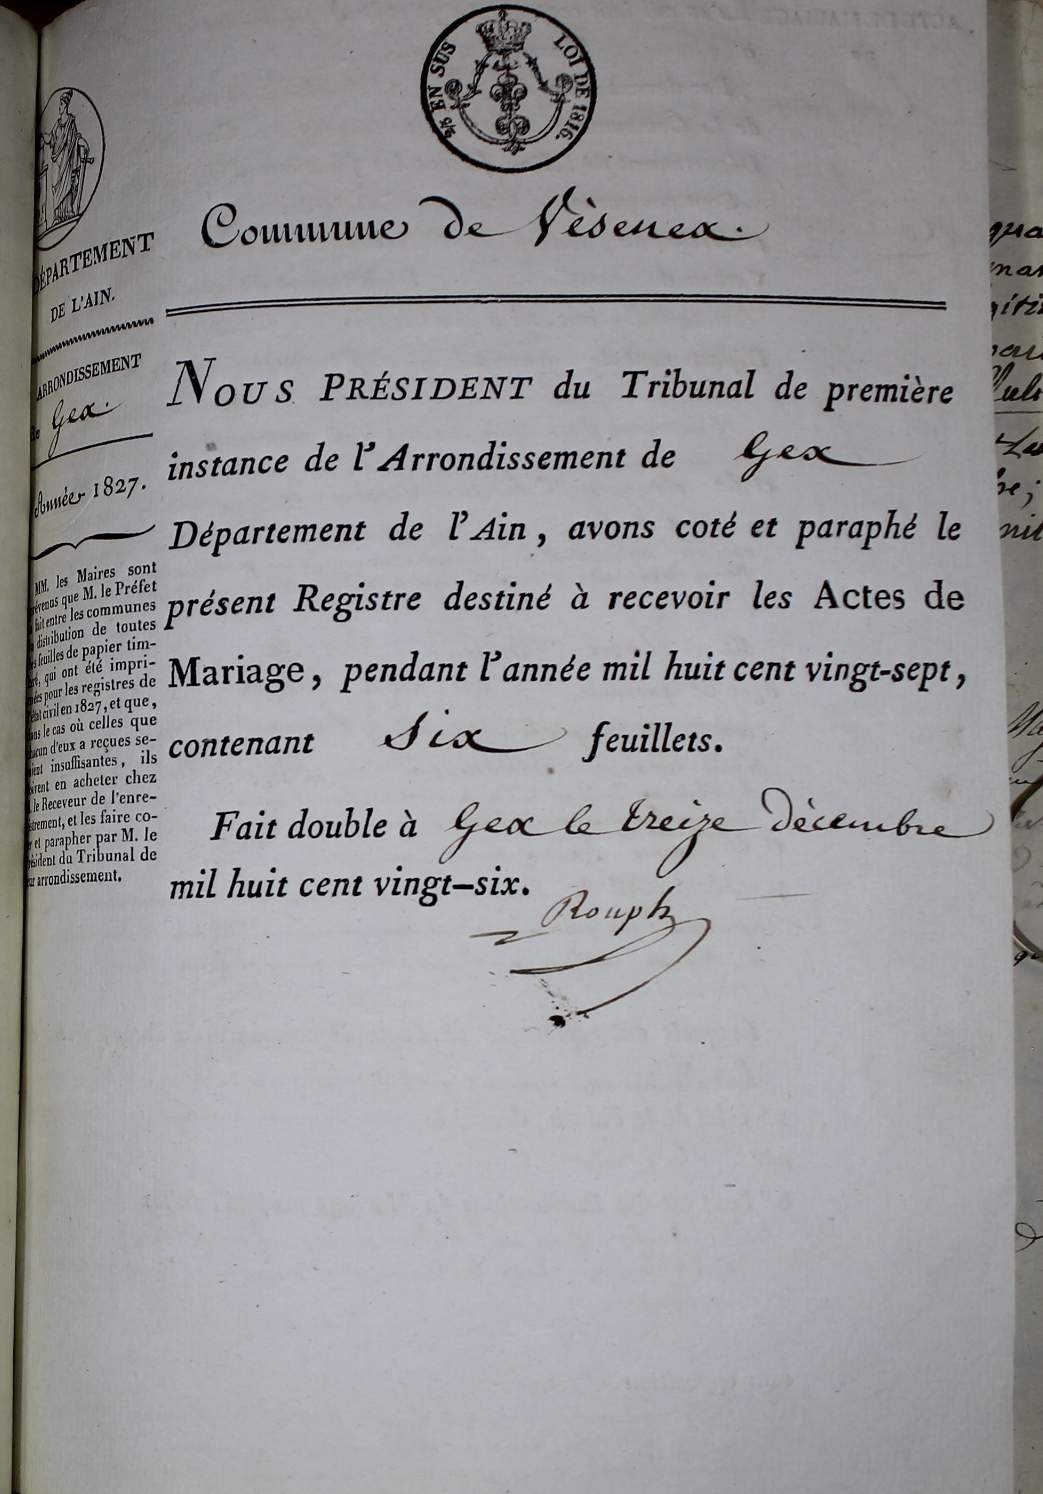 2/5 EN SUS LOI DE 1816.
Commune de Vèsenex.
DÉPARTEMENT
DE L'AIN.
ARRONDISSEMENT
de Gex.
Année 1827.
MM. les Maires sont
prévenus que M. le Préfet
fait entre les communes
distribution de toutes
feuilles de papier tim-
bré, qui ont été impri-
mées pour les registres de
l'état civil en 1827, et que,
dans le cas où celles que
chacun d'eux a reçues se-
raient insuffisantes, ils
doivent en acheter chez
M. le Receveur de l'enre-
gistrement, et les faire co-
ter et parapher par M. le
Président du Tribunal de
leur arrondissement.
NOUS PRÉSIDENT du Tribunal de première
instance de l'Arrondissement de Gex
Département de l'Ain, avons coté et paraphé le
présent Registre destiné à recevoir les Actes de
Mariage, pendant l'année mil huit cent vingt-sept,
contenant Six feuillets.
Fait double à Gex le treize décembre
mil huit cent vingt-six.
Rouph